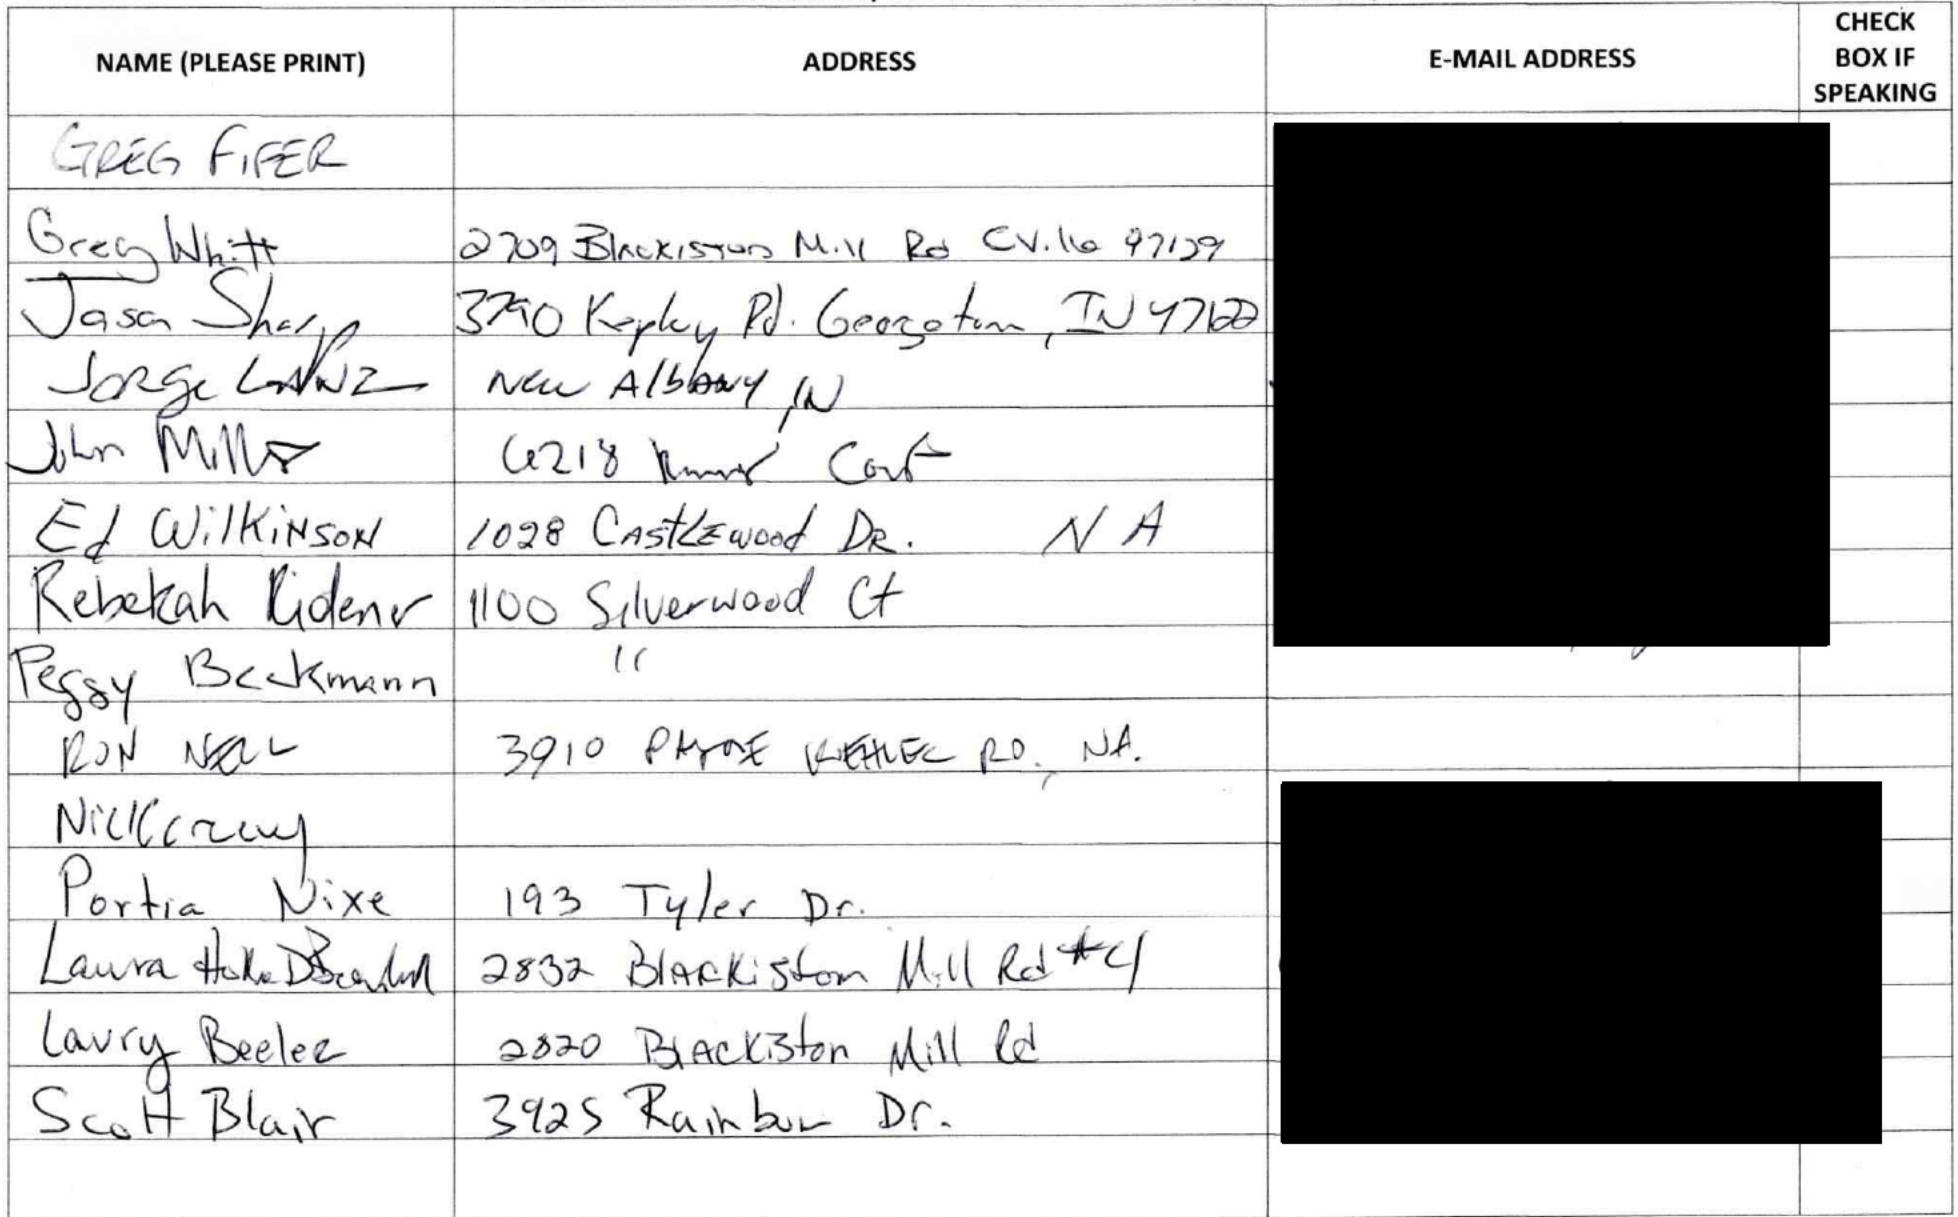 NAME (PLEASE PRINT) ADDRESS E-MAIL ADDRESS CHECK BOX IF SPEAKING
GREG FIFER
Greg Whitt 2709 Blackiston Mill Rd
Jason Sharp 3790 Kepley Rd. Georgetown, IN
JORGE LANZ New Albany, IN
John Miller 6218 Court
Ed Wilkinson 1028 Castlewood Dr. N A
Rebekah 1100 Silverwood Ct
Peggy Beckmann "
RON 3910 PAYNE KOEHLER RD., NA.
Portia Nixe 193 Tyler Dr.
Laura 2832 Blackiston Mill Rd #4
Beeler 2820 Blackiston Mill Rd
Scott Blair 3925 Rainbow Dr.